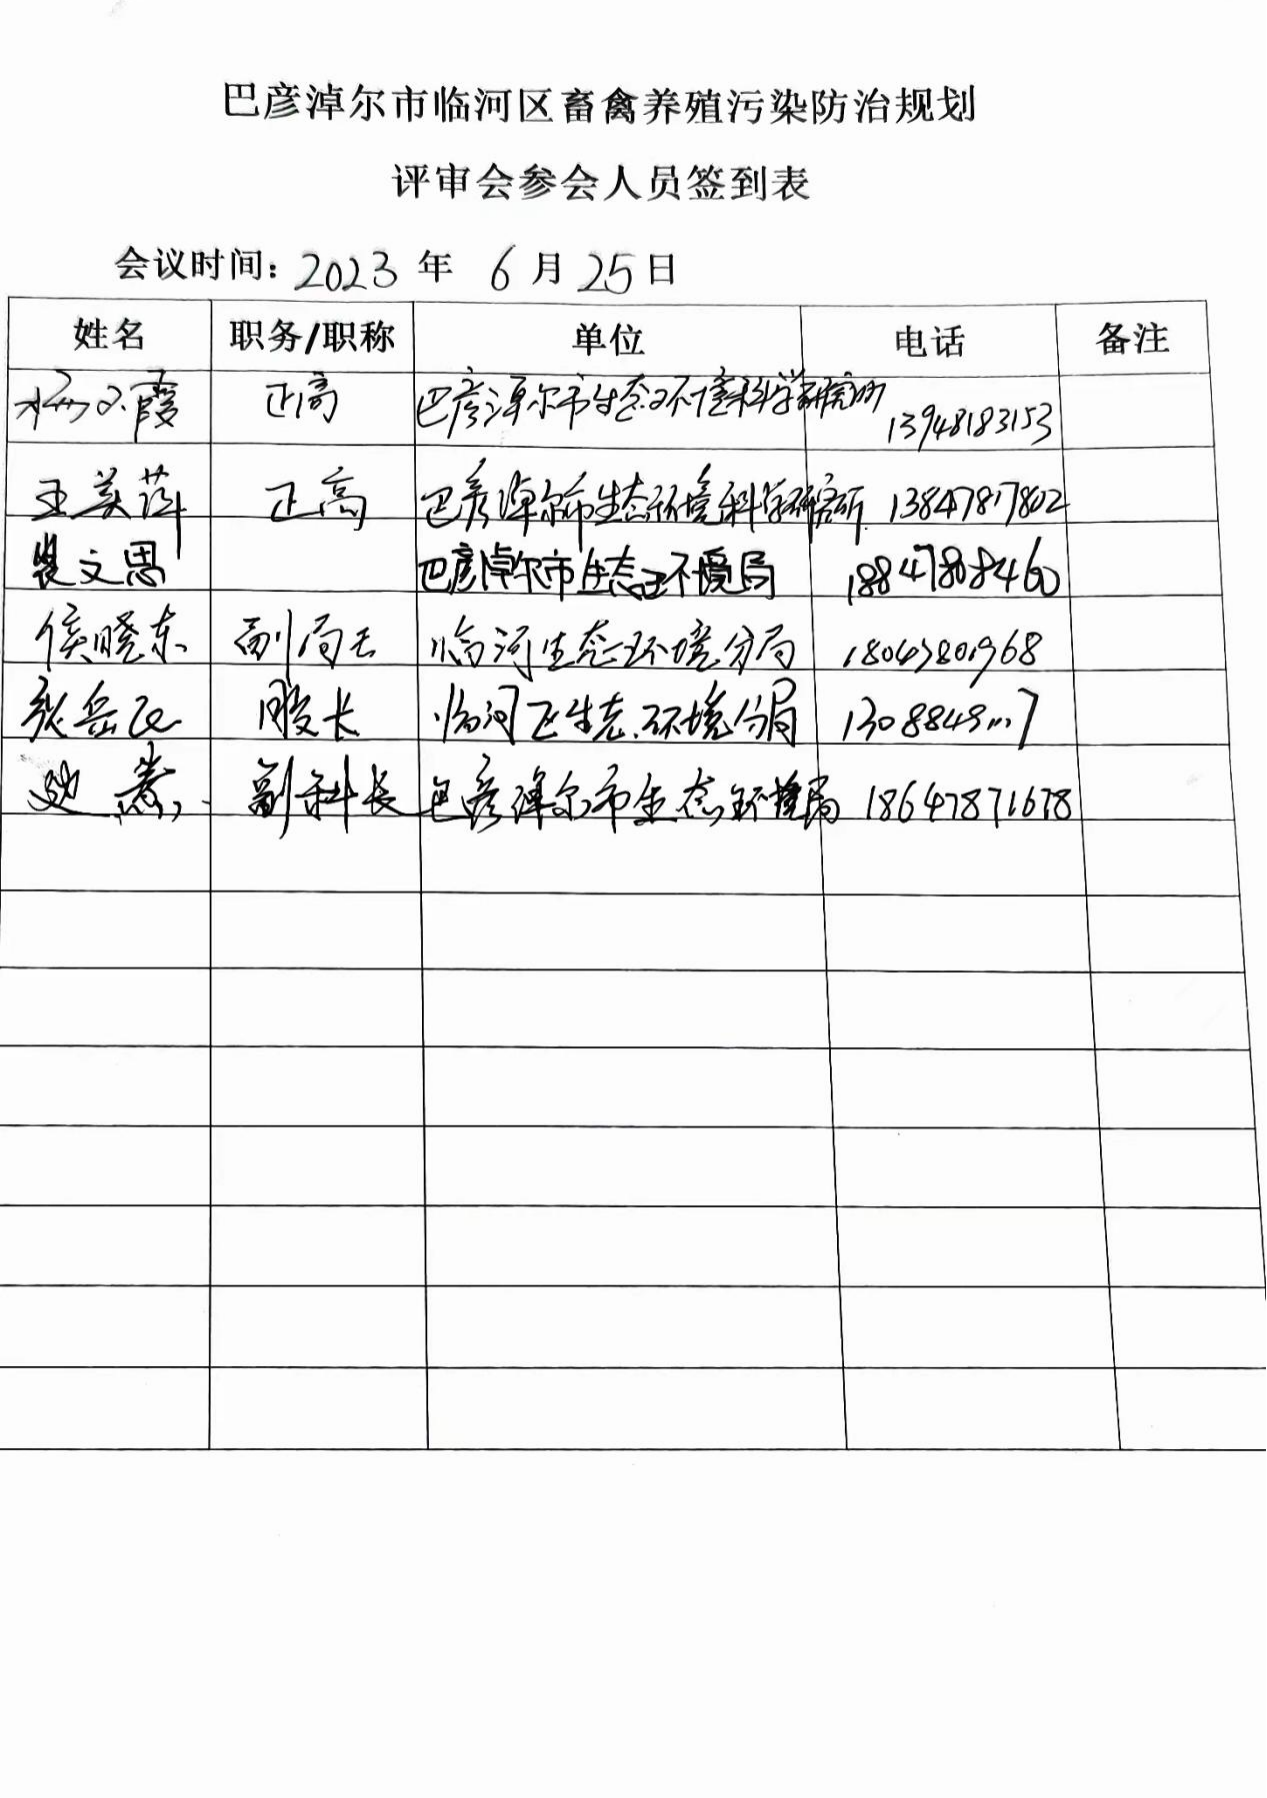 巴彦淖尔市临河区畜禽养殖污染防治规划
评审会参会人员签到表
会议时间: 2023 年 6 月 25 日
姓名 职务/职称 单位 电话 备注
霞 正高 巴彦淖尔市生态环境科学研究所 13948183153
王美萍 正高 巴彦淖尔市生态环境科学研究所 13847817802
裴文思 巴彦淖尔市生态环境局 18847808460
侯晓东 副局长 临河生态环境分局 18047801968
张岳 股长 临河区生态环境分局
副科长 巴彦淖尔市生态环境局 18647871678